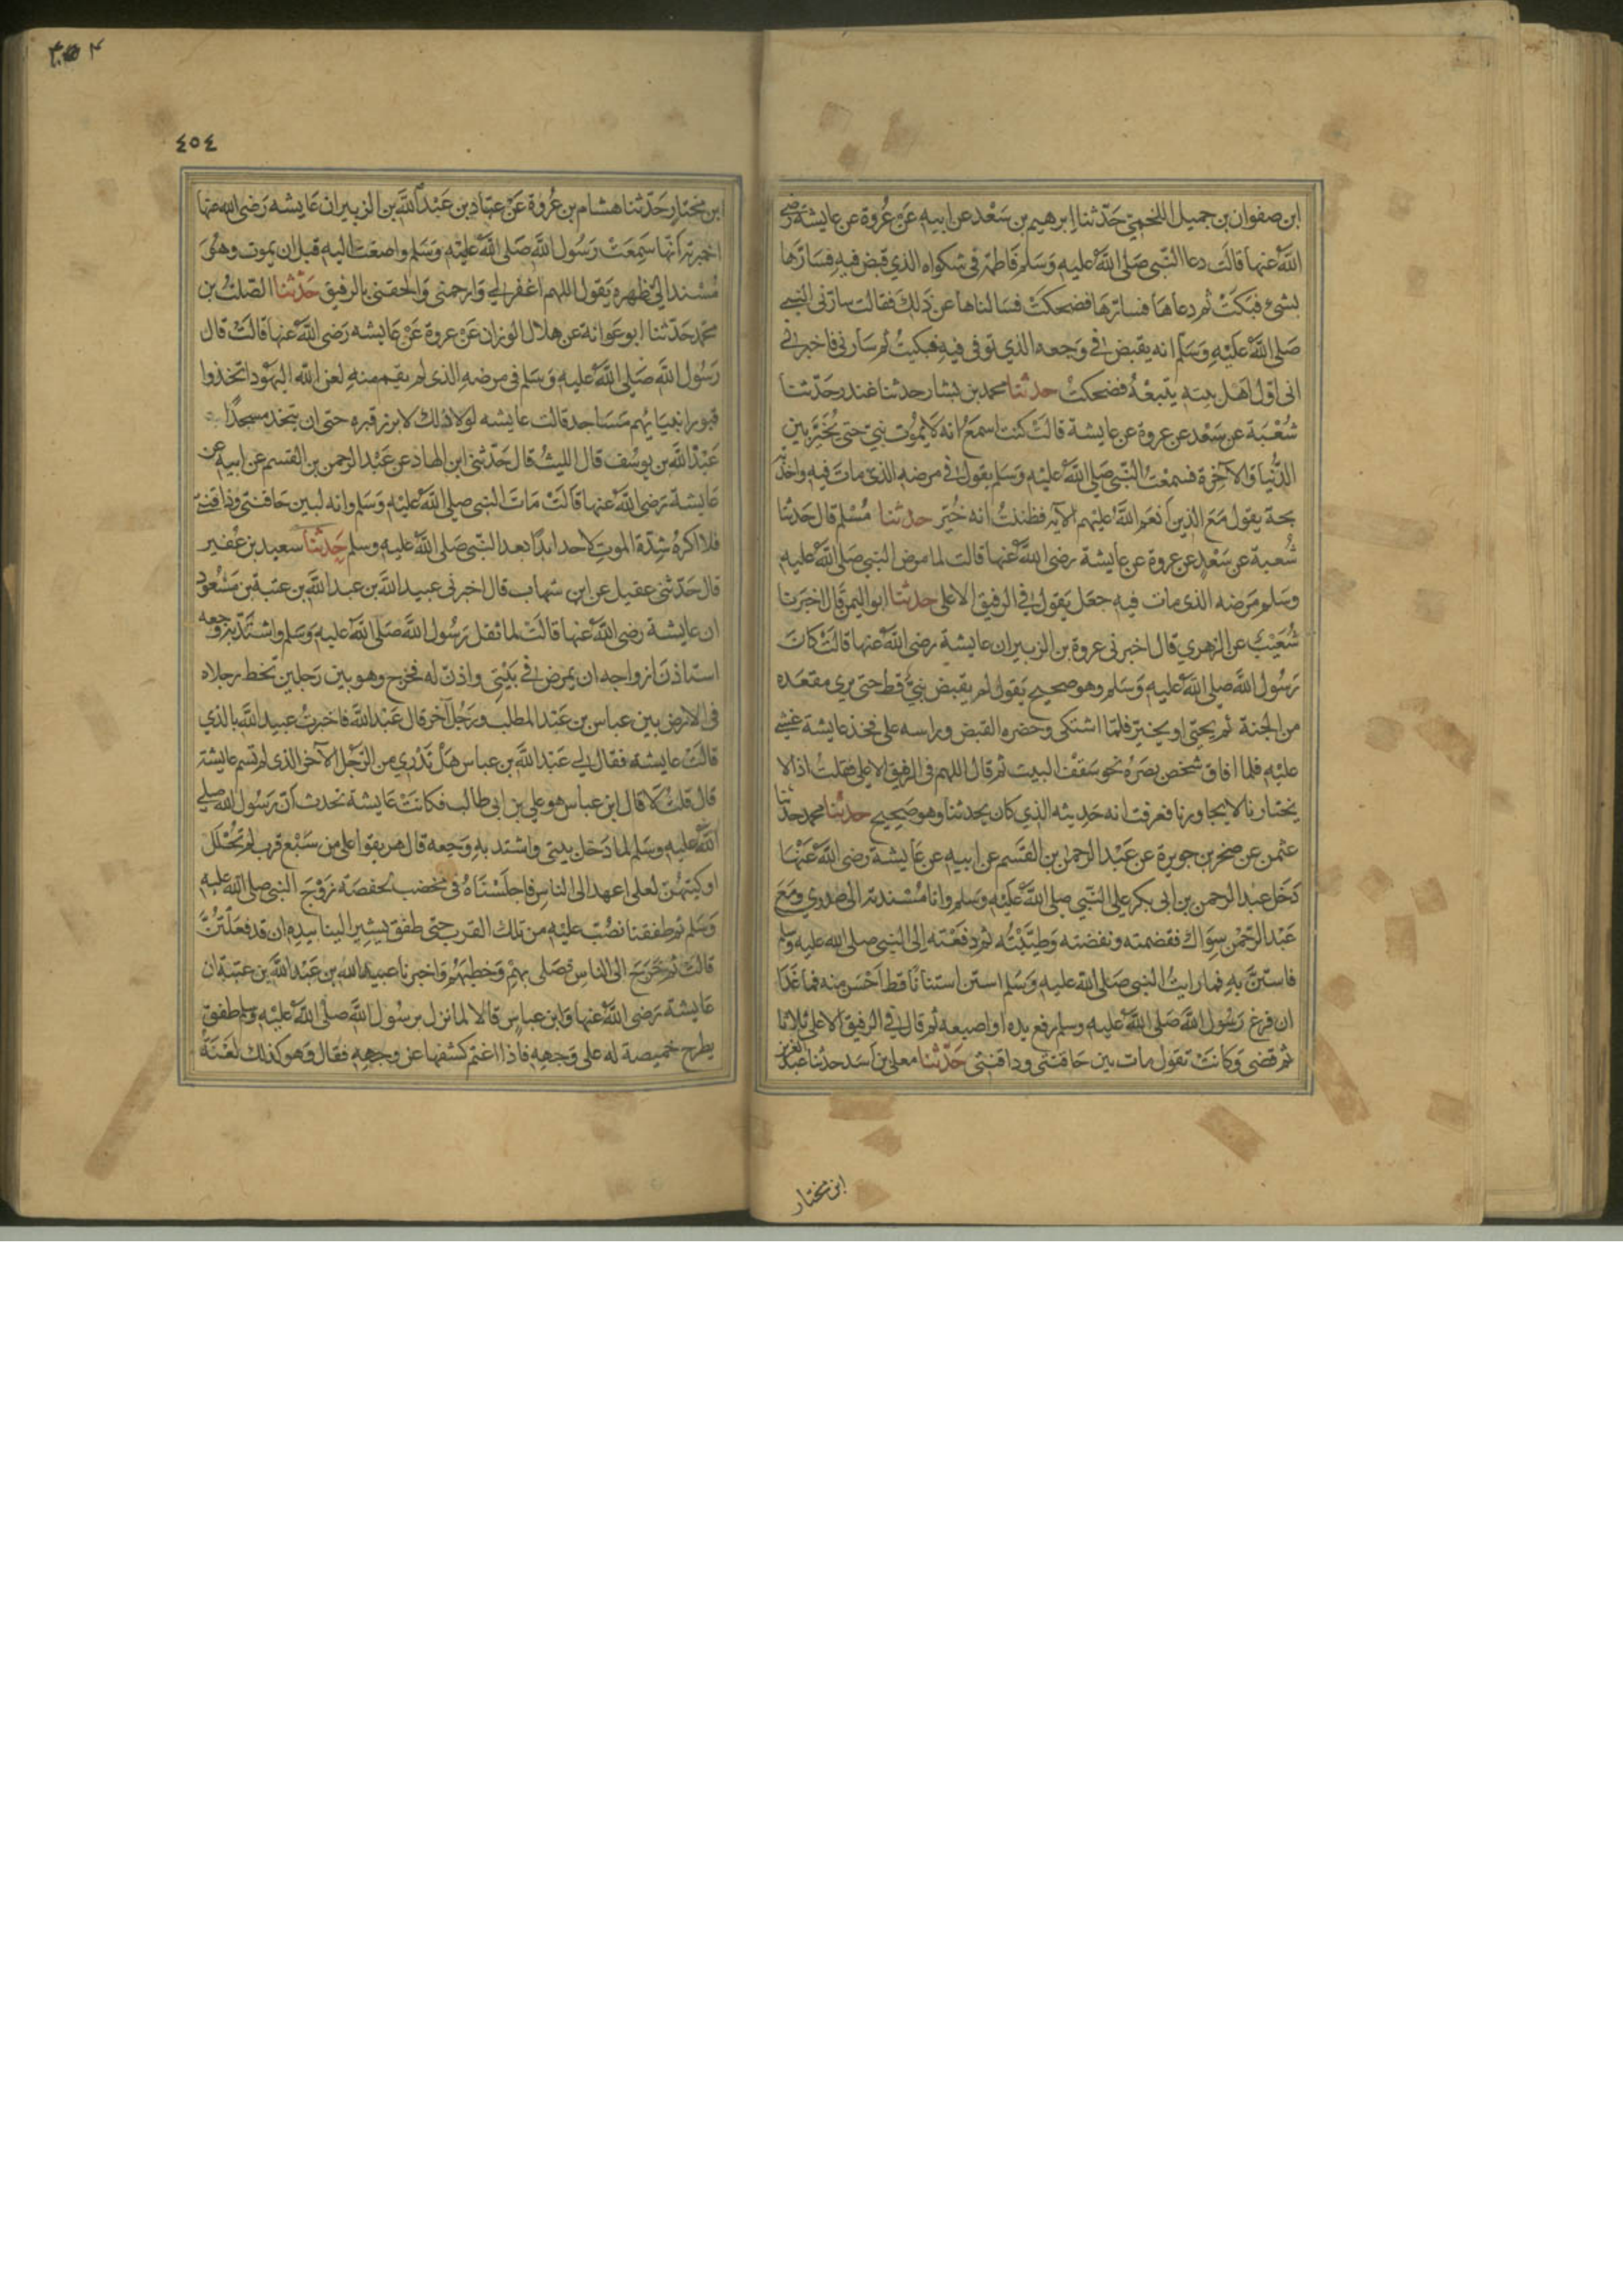 ابن صفوان بن جميل اللخمي حدثنا ابرهيم بن سعد عن ابيه عن عروة عن عايشة رضى
الله عنها قالت دعا النبي صلى الله عليه وسلم فاطمة في شكواه الذي قبض فيه فسارها
بشئ فبكت ثم دعاها فسارها فضحكت فسالناها عن ذلك فقالت سارني النبي
صلى الله عليه وسلم انه يقبض في وجعه الذي توفى فيه فبكيت ثم سارني فاخبرني
انى اول اهل بيته يتبعه فضحكت حدثنا محمد بن بشار حدثنا غندر حدثنا
شعبة عن سعد عن عروة عن عايشة قالت كنت اسمع انه لا يموت نبي حتى يخير بين
الدنيا والآخرة فسمعت النبي صلى الله عليه وسلم يقول في مرضه الذى مات فيه واخذته
بحة يقول مع الذين انعم الله عليهم الآية فظننت انه خير حدثنا مسلم قال حدثنا
شعبة عن سعد عن عروة عن عايشة رضى الله عنها قالت لما مرض النبي صلى الله عليه
وسلم مرضه الذى مات فيه جعل يقول في الرفيق الاعلى حدثنا ابو اليمن قال اخبرنا
شعيب عن الزهري قال اخبرنى عروة بن الزبير ان عايشة رضى الله عنها قالت كان
رسول الله صلى الله عليه وسلم وهو صحيح يقول لم يقبض نبي قط حتى يرى مقعده
من الجنة ثم يحيى او يخير فلما اشتكى وحضره القبض وراسه على فخذ عايشة غشي
عليه فلما افاق شخص بصره نحو سقف البيت ثم قال اللهم في الرفيق الاعلى فقلت اذا لا
يختارنا لا يجاورنا فعرفت انه حديثه الذي كان يحدثنا وهو صحيح حدثنا محمد حدثنا
عثمن عن صخر بن جويرة عن عبد الرحمن بن القسم عن ابيه عن عايشة رضى الله عنها
دخل عبد الرحمن بن ابى بكر على النبي صلى الله عليه وسلم وانا مسندته الى صدري ومع
عبد الرحمن سواك فقضمته ونفضته وطيبته ثم دفعته الى النبي صلى الله عليه وسلم
فاستن به فما رايت النبي صلى الله عليه وسلم استن استنانا قط احسن منه فما غدا
ان فرغ رسول الله صلى الله عليه وسلم رفع يده او اصبعه ثم قال في الرفيق الاعلى ثلاثا
ثم قضى وكانت تقول مات بين حاقنتى وداقنتى حدثنا معلى بن اسد حدثنا عبد العزيز
ابن مختار
٤٥٤
ابن مختار حدثنا هشام بن عروة عن عباد بن عبد الله بن الزبير ان عايشه رضى الله عنها
اخبرته انها سمعت رسول الله صلى الله عليه وسلم واصغت اليه قبل ان يموت وهو
مسند الي ظهره يقول اللهم اغفر لي وارحمنى والحقنى بالرفيق حدثنا الصلت بن
محمد حدثنا ابو عوانة عن هلال الوزان عن عروة عن عايشه رضى الله عنها قالت قال
رسول الله صلى الله عليه وسلم في مرضه الذى لم يقم منه لعن الله اليهود اتخذوا
قبور انبيايهم مساجد قالت عايشه لولا ذلك لابرز قبره حتى ان يتخذ مسجدا
عبد الله بن يوسف قال الليث قال حدثنى ابن الهاد عن عبد الرحمن بن القسم عن ابيه عن
عايشة رضى الله عنها قالت مات النبي صلى الله عليه وسلم وانه لبين حاقنتى وذاقنتى
فلا اكره شدة الموت لاحد ابدا بعد النبي صلى الله عليه وسلم حدثنا سعيد بن عفير
قال حدثنى عقيل عن ابن شهاب قال اخبرنى عبيد الله بن عبد الله بن عتبة بن مسعود
ان عايشة رضى الله عنها قالت لما ثقل رسول الله صلى الله عليه وسلم واشتد به وجعه
استاذن ازواجه ان يمرض في بيتى واذن له فخرج وهو بين رجلين تخط رجلاه
في الارض بين عباس بن عبد المطلب ورجل آخر قال عبد الله فاخبرت عبيد الله بالذي
قالت عايشة فقال لي عبد الله بن عباس هل تدري من الرجل الآخر الذى لم تسم عايشة
قال قلت لا قال ابن عباس هو علي بن ابى طالب فكانت عايشة تحدث ان رسول الله صلى
الله عليه وسلم لما دخل بيتى واشتد به وجعه قال هريقوا علي من سبع قرب لم تحلل
اوكيتهن لعلى اعهد الى الناس فاجلسناه في مخضب لحفصة زوج النبي صلى الله عليه
وسلم ثم طفقنا نصب عليه من تلك القرب حتى طفق يشير الينا بيده ان قد فعلتن
قالت ثم خرج الى الناس فصلى بهم وخطبهم واخبرنا عبيد الله بن عبد الله بن عتبة ان
عايشة رضى الله عنها وابن عباس قالا لما نزل برسول الله صلى الله عليه وسلم طفق
يطرح خميصة له على وجهه فاذا اغتم كشفها عن وجهه فقال وهو كذلك لعنة